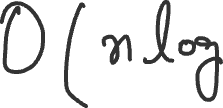 O(n log